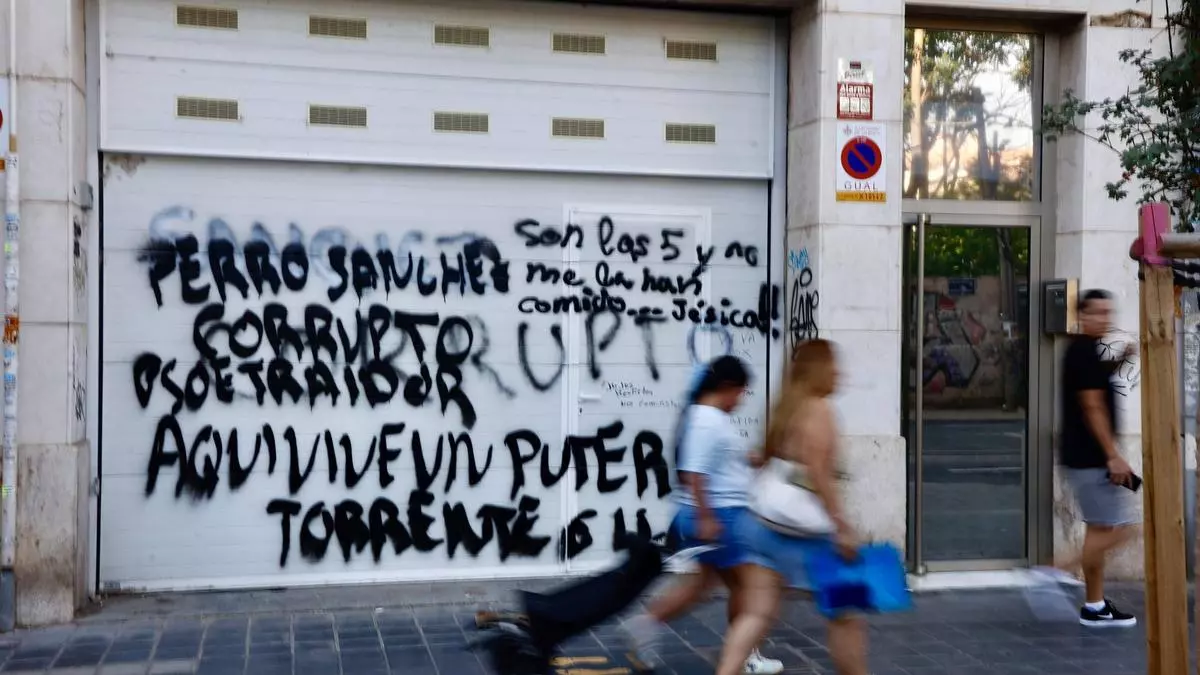 PERRO SANCHEZ
son las 5 y no
me la han
comido... Jésica!!
CORRUPTO
PSOE TRAIDOR
AQUI VIVE UN PUTER
TORRENTE
Alarma
GUAL